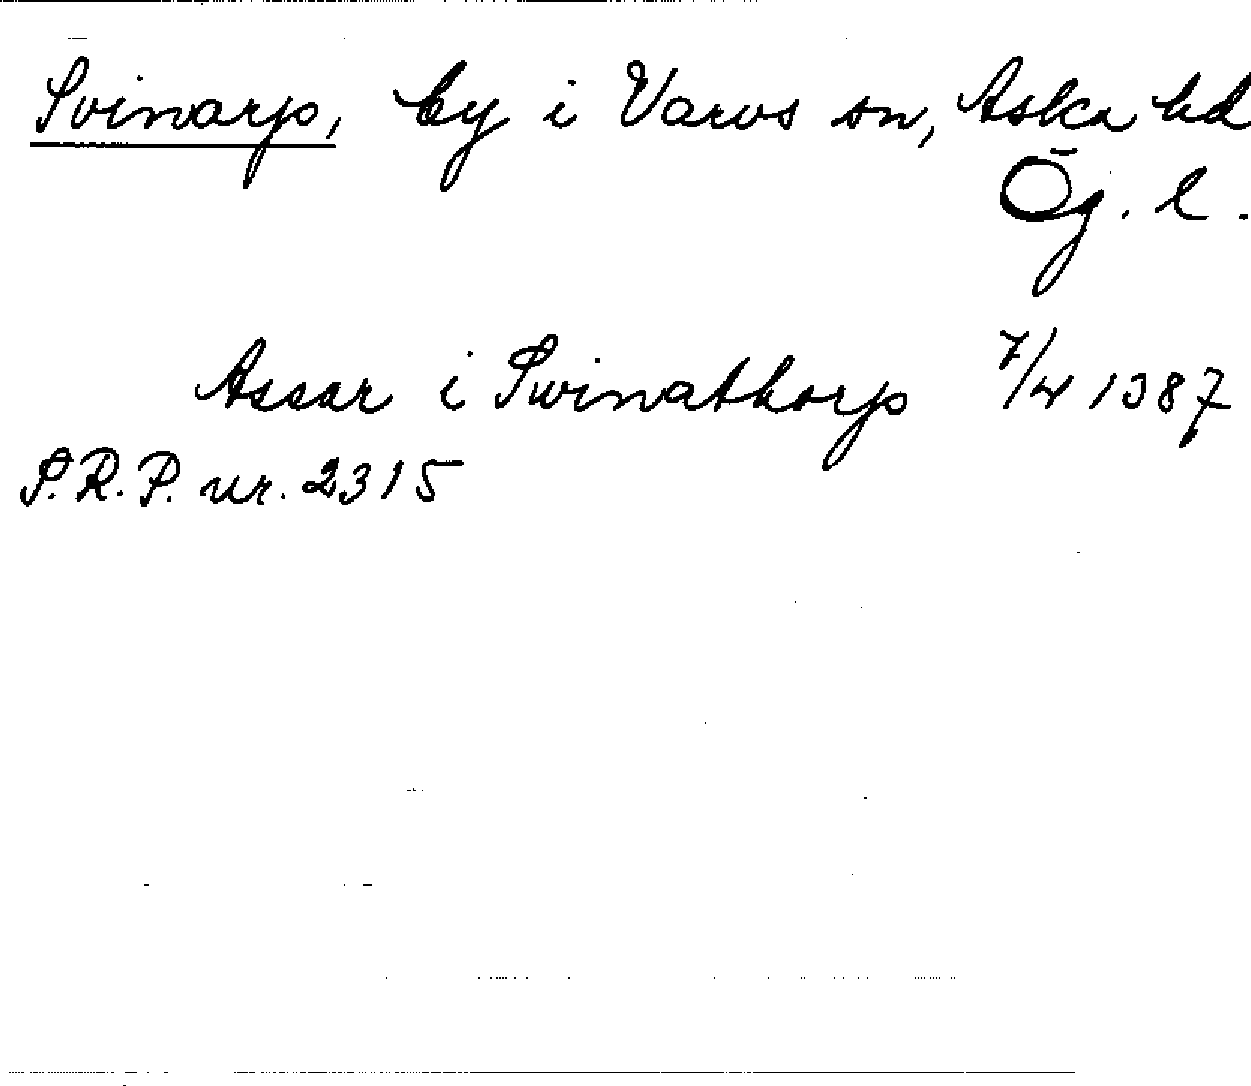 Svinarp, by i Varvs sn, Aska hd
Ög. l.
Assar i Swinathorp 7/4 1387
S.R.P. nr. 2315